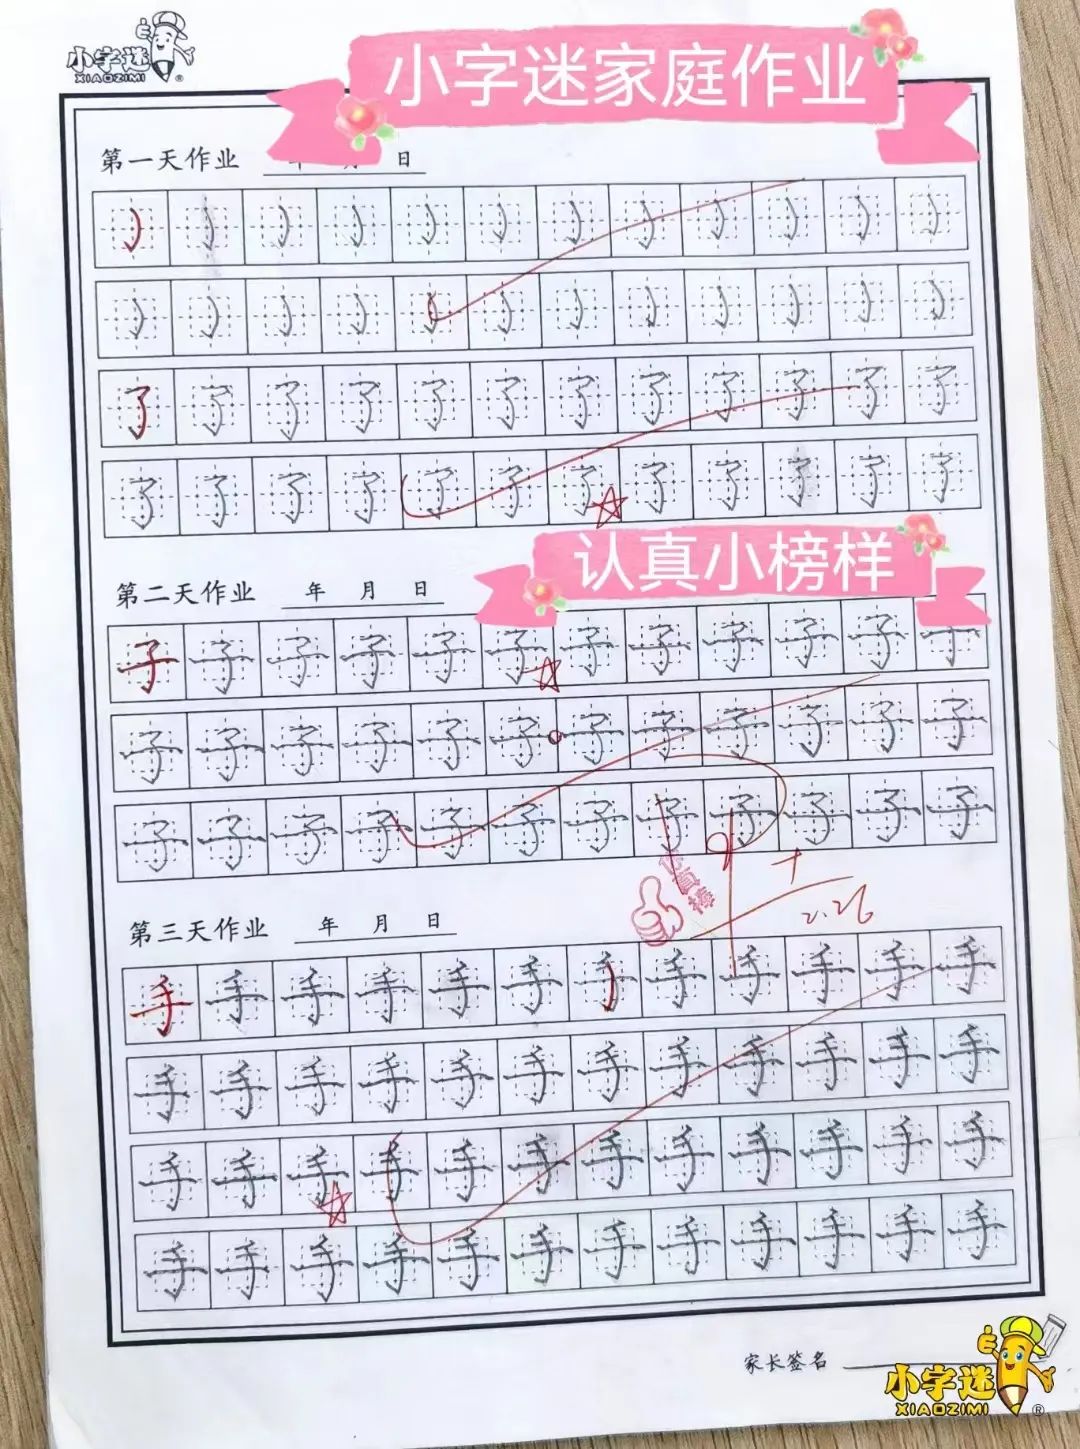 小字迷
XIAOZIMI ®
小字迷家庭作业
第一天作业 日
了 了 了 了 了 了 了 了 了 了 了 了
了 了 了 了 了 了 了 了 了 了 了 了
第二天作业 年 月 日
认真小榜样
子 子 子 子 子 子 子 子 子 子 子 子
子 子 子 子 子 子 子 子 子 子 子 子
子 子 子 子 子 子 子 子 子 子 子 子
2.26
第三天作业 年 月 日
手 手 手 手 手 手 手 手 手 手 手 手
手 手 手 手 手 手 手 手 手 手 手 手
手 手 手 手 手 手 手 手 手 手 手 手
手 手 手 手 手 手 手 手 手 手 手 手
家长签名
小字迷
XIAOZIMI ®